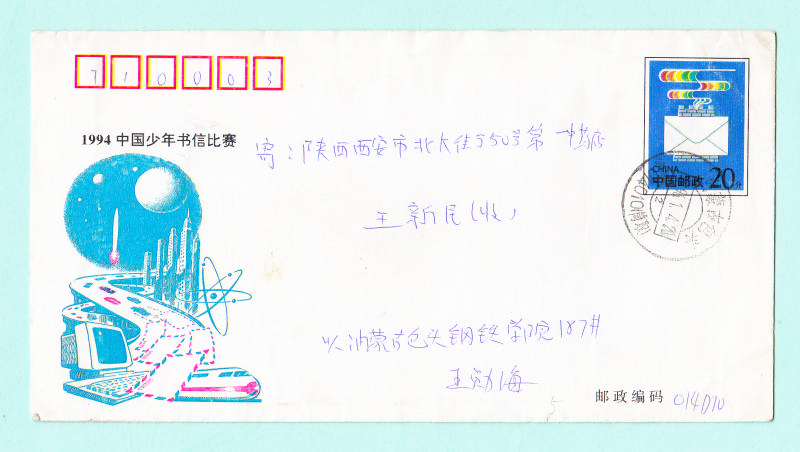 710003
1994 中国少年书信比赛
CHINA
中国邮政 20分
寄：陕西西安市北大街350号第一中药店
王新民(收)
内蒙古包头钢铁学院187#
王劲海
邮政编码 014010